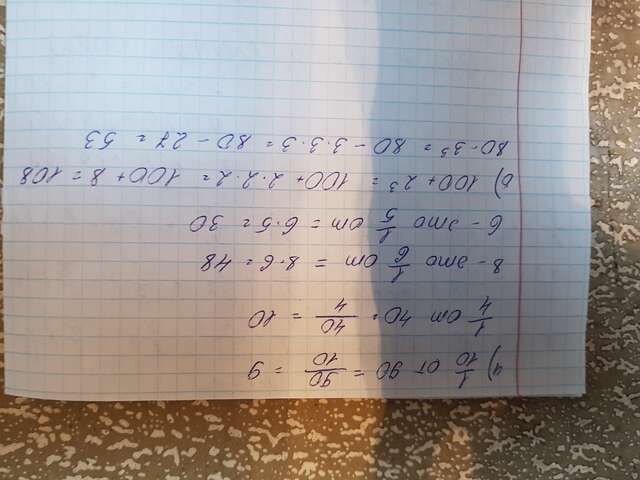 а) 1/10 от 90 = 90/10 = 9
1/4 от 40 = 40/4 = 10
8 - это 1/6 от = 8·6 = 48
6 - это 1/5 от = 6·5 = 30
б) 100 + 2³ = 100 + 2·2·2 = 100 + 8 = 108
80 · 3³ = 80 - 3·3·3 = 80 - 27 = 53